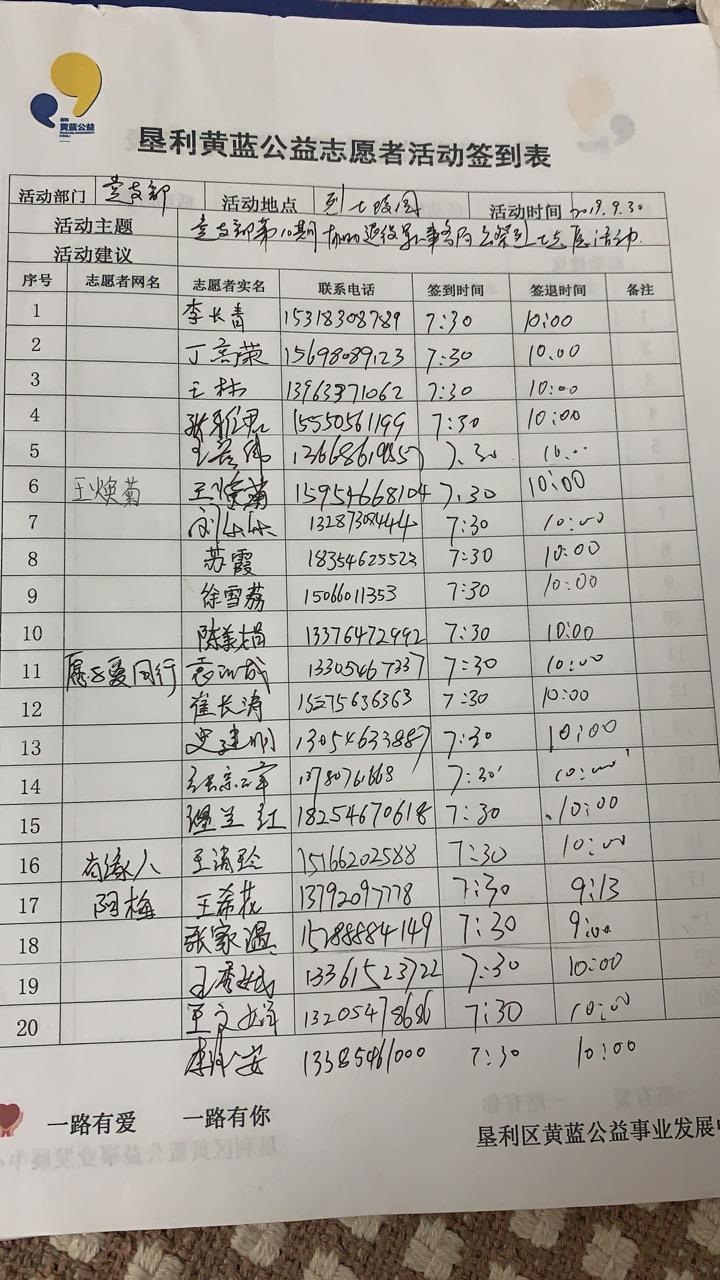 黄蓝公益
垦利黄蓝公益志愿者活动签到表
活动部门 党支部 活动地点 烈士陵园 活动时间 2019.9.30
活动主题 党支部第10期协助退役军人事务局公祭烈士 活动
活动建议
序号 志愿者网名 志愿者实名 联系电话 签到时间 签退时间 备注
1 李长青 15318308789 7:30 10:00
2 丁高荣 15698089123 7:30 10:00
3 王林 13963371062 7:30 10:00
4 张雅君 15550561199 7:30 10:00
5 7:30 10:00
6 王焕菊 王焕菊 15954668104 7:30 10:00
7 7:30 10:00
8 苏霞 18354625523 7:30 10:00
9 徐雪荔 15066011353 7:30 10:00
10 陈美娟 13376472992 7:30 10:00
11 愿与爱同行 13305467337 7:30 10:00
12 崔长涛 15275636363 7:30 10:00
13 史建明 13054633887 7:30 10:00
14 7:30 10:00
15 18254670618 7:30 10:00
16 有缘人 王消玲 15166202588 7:30 10:00
17 阿梅 王希花 13792097778 7:30 9:13
18 张家温 15288884149 7:30 9:00
19 王秀娥 13361523722 7:30 10:00
20 王文 13205478686 7:30 10:00
李 安 13385461000 7:30 10:00
一路有爱 一路有你
垦利区黄蓝公益事业发展中